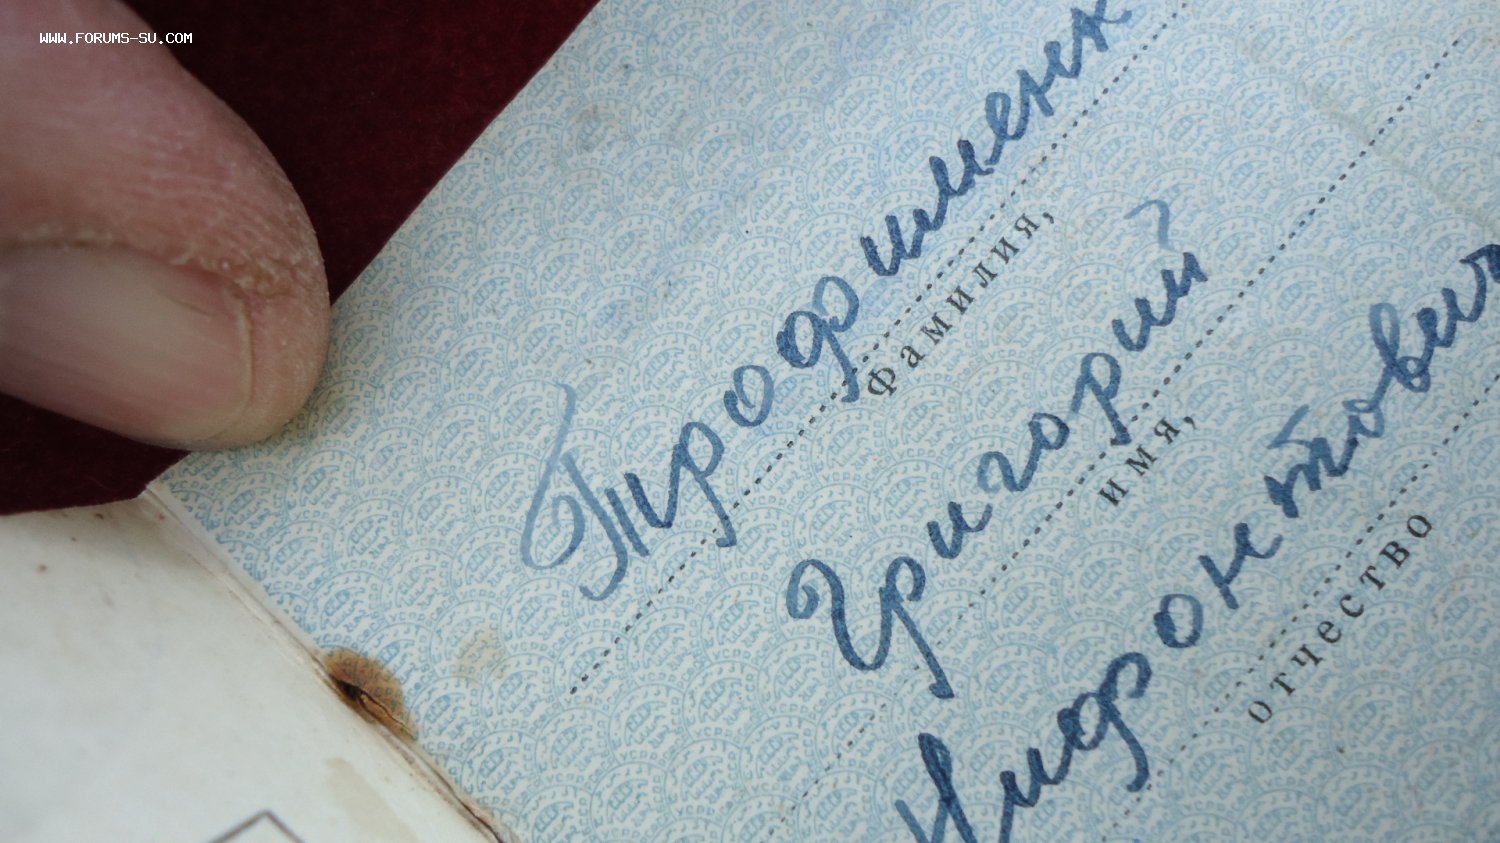 WWW.FORUMS-SU.COM
Трофименк
фамилия,
Григорий
имя,
Нифонтович
отчество